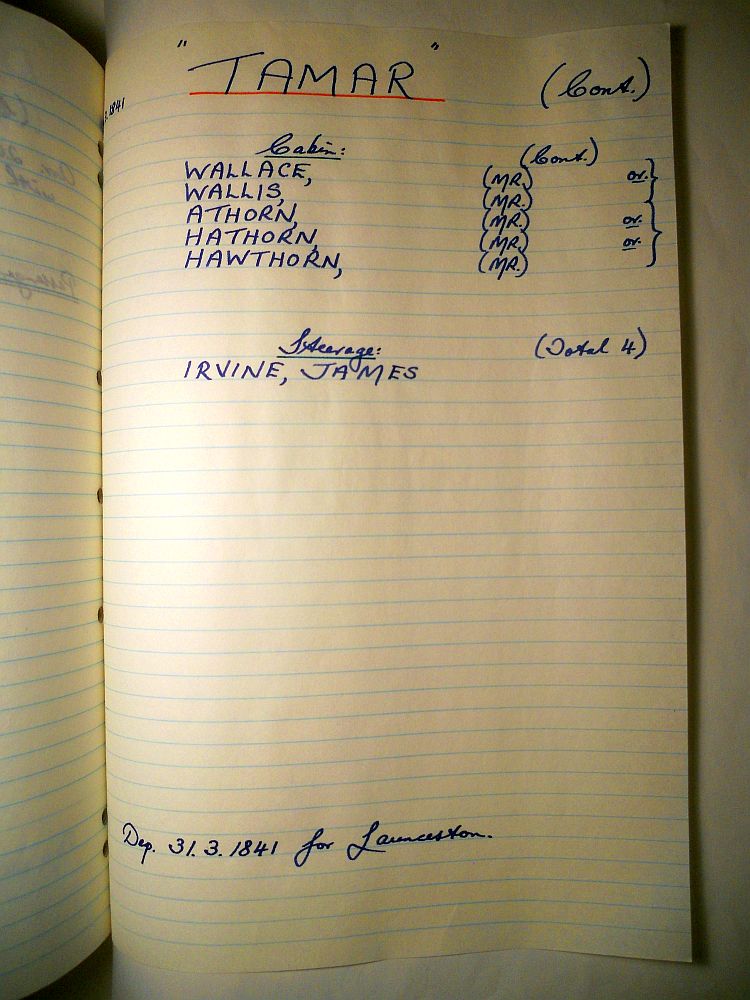 "TAMAR" (Cont.)
3.1841
Cabin: (Cont.)
WALLACE, (MR.) or.
WALLIS, (MR.)
ATHORN, (MR.) or.
HATHORN, (MR.) or.
HAWTHORN, (MR.)
Steerage: (Total 4)
IRVINE, JAMES
Dep. 31.3.1841 for Launceston.